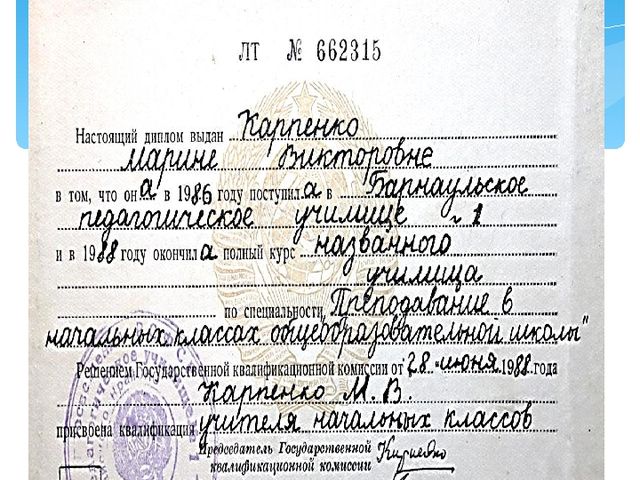 ЛТ № 662315
Настоящий диплом выдан Карпенко
Марине Викторовне
в том, что она в 1986 году поступила в Барнаульское
педагогическое училище №1
и в 1988 году окончила полный курс названного
училища
по специальности „Преподавание в
начальных классах общеобразовательной школы"
Решением Государственной квалификационной комиссии от „28" июня 1988 года
Карпенко М. В.
присвоена квалификация учителя начальных классов
Председатель Государственной
квалификационной комиссии